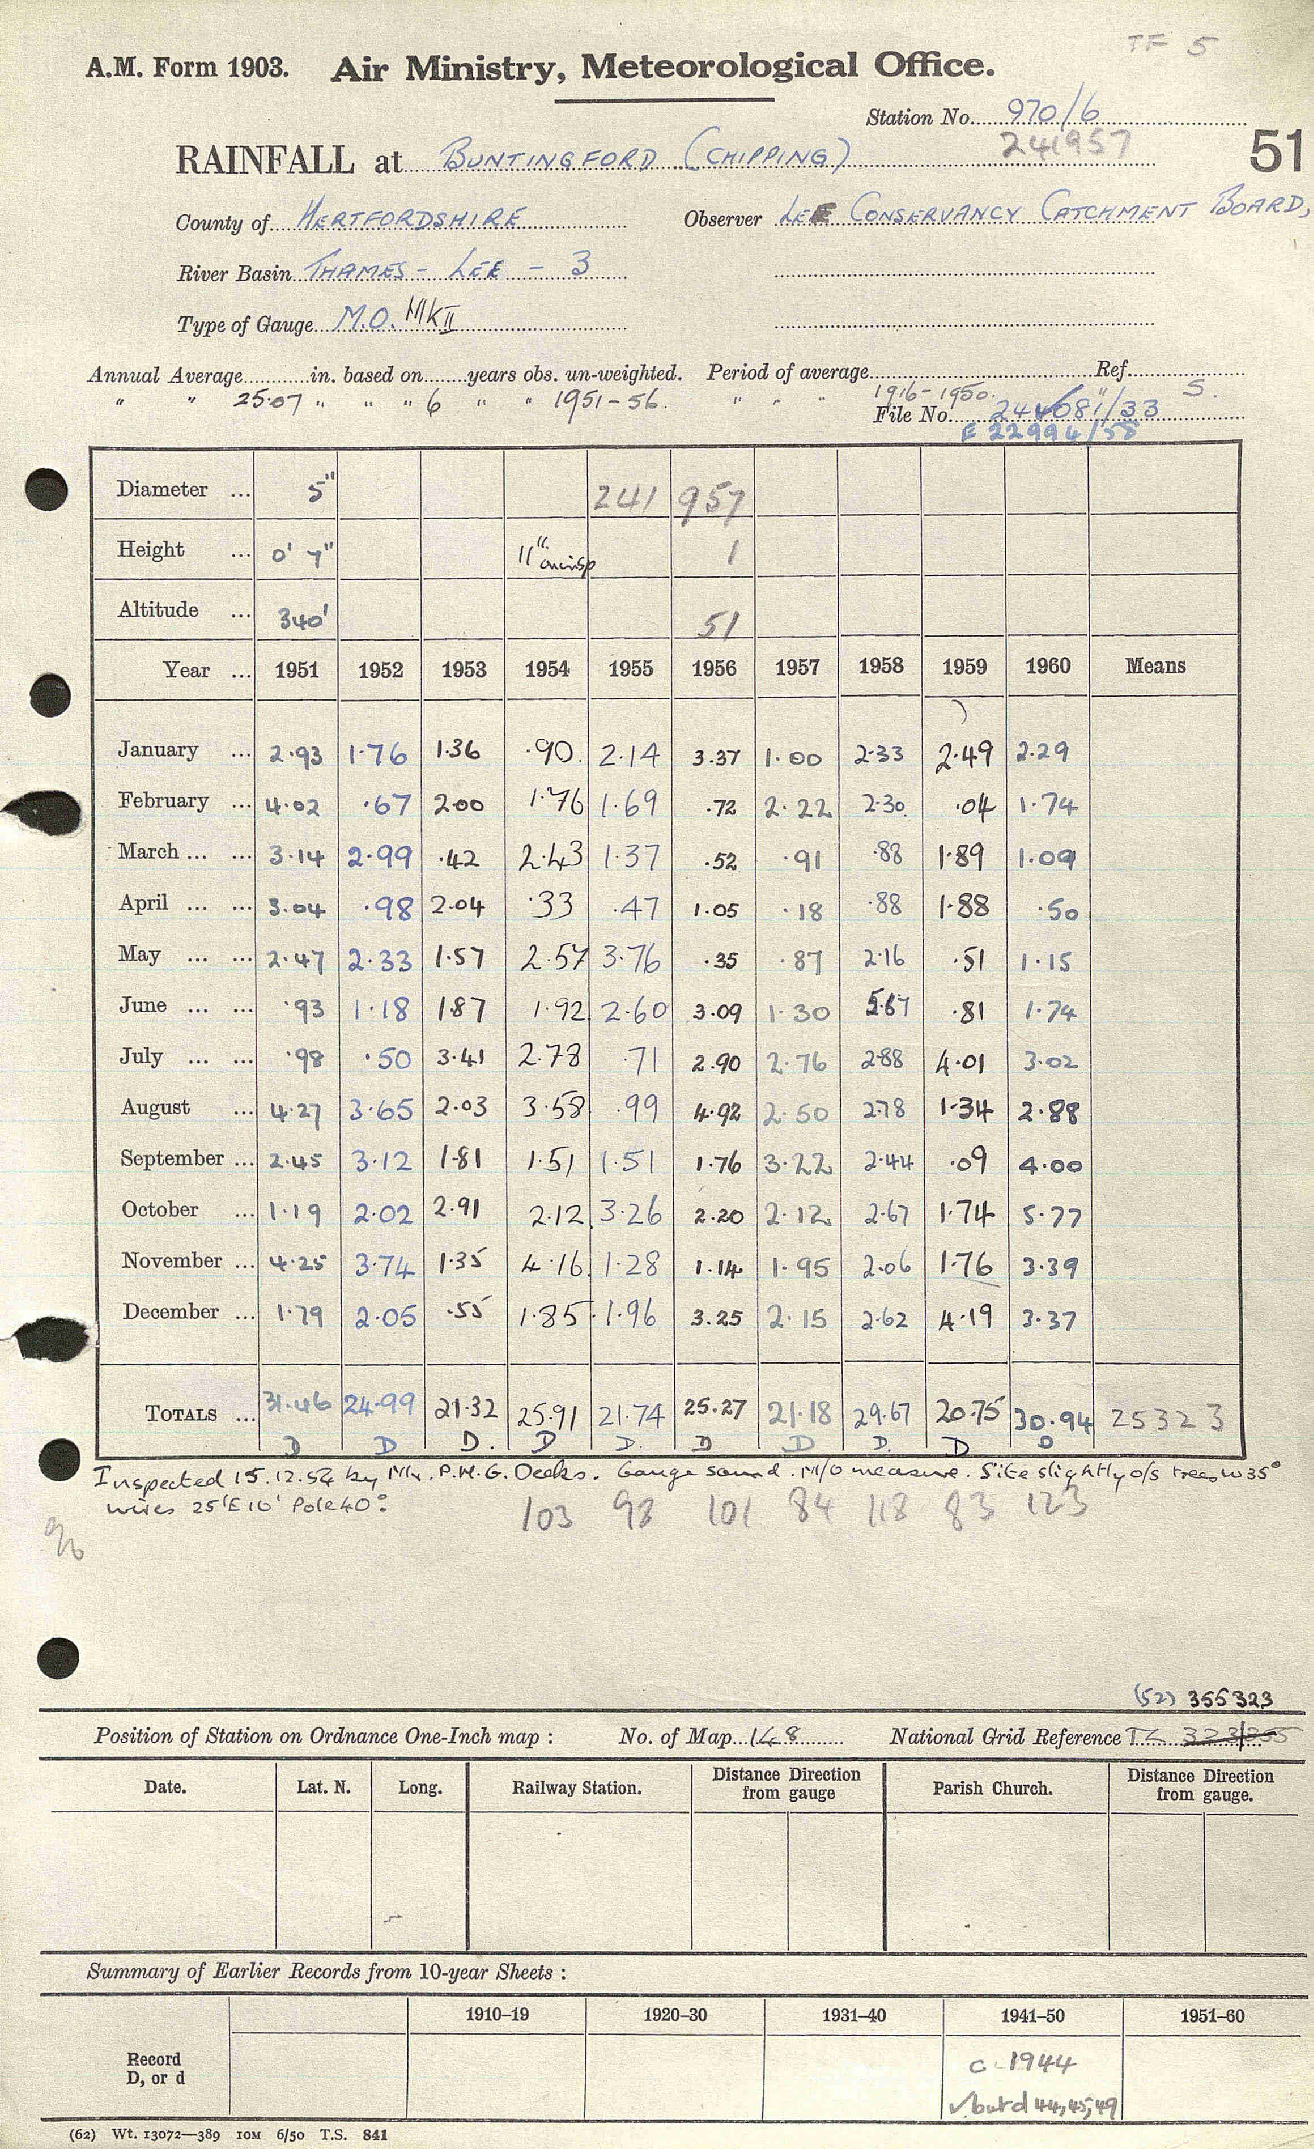 TF 5
A.M. Form 1903. Air Ministry, Meteorological Office.
Station No. 970/6
241957
51
RAINFALL at BUNTINGFORD (CHIPPING)
County of HERTFORDSHIRE Observer LEE CONSERVANCY CATCHMENT BOARD,
River Basin THAMES - LEE - 3
Type of Gauge M.O. MKII
Annual Average in. based on years obs. un-weighted. Period of average Ref.
" " 25.07 " " " 6 " " 1951-56. " " " 1916-1950. S.
File No.
E 22994/58
Diameter ... 5" 241 957
Height ... 0' 7" 11" oninsp 1
Altitude ... 340' 51
Year ... 1951 1952 1953 1954 1955 1956 1957 1958 1959 1960 Means
January ... 2.93 1.76 1.36 .90 2.14 3.37 1.00 2.33 2.49 2.29
February ... 4.02 .67 2.00 1.76 1.69 .72 2.22 2.30 .04 1.74
March ... ... 3.14 2.99 .42 2.43 1.37 .52 .91 .88 1.89 1.09
April ... ... 3.04 .98 2.04 .33 .47 1.05 .18 .88 1.88 .50
May ... ... 2.47 2.33 1.57 2.57 3.76 .35 .87 2.16 .51 1.15
June ... ... .93 1.18 1.87 1.92 2.60 3.09 1.30 5.67 .81 1.74
July ... ... .98 .50 3.41 2.78 .71 2.90 2.76 2.88 4.01 3.02
August ... 4.27 3.65 2.03 3.58 .99 4.92 2.50 2.78 1.34 2.88
September ... 2.45 3.12 1.81 1.51 1.51 1.76 3.22 2.44 .09 4.00
October ... 1.19 2.02 2.91 2.12 3.26 2.20 2.12 2.67 1.74 5.77
November ... 4.25 3.74 1.35 4.16 1.28 1.14 1.95 2.06 1.76 3.39
December ... 1.79 2.05 .55 1.85 1.96 3.25 2.15 2.62 4.19 3.37
TOTALS ... 31.46 24.99 21.32 25.91 21.74 25.27 21.18 29.67 20.75 30.94 25323
D D D. D D. D D D. D D
Inspected 15.12.54 by Mr. P.H.G. Deeks. Gauge sound. M/O measure. Site slightly o/s trees W35°
wires 25'E 10' Pole 40°.
% 103 98 101 84 118 83 123
(52) 355323
Position of Station on Ordnance One-Inch map : No. of Map 148 National Grid Reference TL 323/355
Date. Lat. N. Long. Railway Station. Distance Direction from gauge Parish Church. Distance Direction from gauge.
Summary of Earlier Records from 10-year Sheets :
1910–19 1920–30 1931–40 1941–50 1951–60
Record
D, or d
c. 1944
✓ but d 44, 45, 49
(62) Wt. 13072—389 10M 6/50 T.S. 841